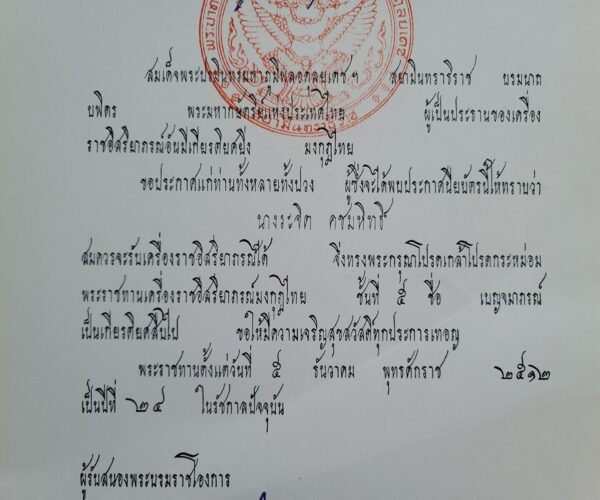 สมเด็จพระปรมินทรมหาภูมิพลอดุลยเดช ฯ สยามินทราธิราช บรมนาถ
บพิตร พระมหากษัตริย์แห่งประเทศไทย ผู้เป็นประธานของเครื่อง
ราชอิสริยาภรณ์อันมีเกียรติยศยิ่ง มงกุฎไทย
ขอประกาศแก่ท่านทั้งหลายทั้งปวง ผู้ซึ่งจะได้พบประกาศนียบัตรนี้ให้ทราบว่า
นางระจิต คชมหิทธิ์
สมควรจะรับเครื่องราชอิสริยาภรณ์ได้ จึงทรงพระกรุณาโปรดเกล้าโปรดกระหม่อม
พระราชทานเครื่องราชอิสริยาภรณ์มงกุฎไทย ชั้นที่ ๕ ชื่อ เบญจมาภรณ์
เป็นเกียรติยศสืบไป ขอให้มีความเจริญสุขสวัสดิ์ทุกประการเทอญ
พระราชทานตั้งแต่วันที่ ๕ ธันวาคม พุทธศักราช ๒๕๑๒
เป็นปีที่ ๒๔ ในรัชกาลปัจจุบัน
ผู้รับสนองพระบรมราชโองการ